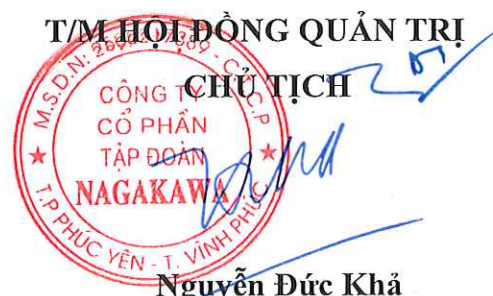 T/M HỘI ĐỒNG QUẢN TRỊ
CHỦ TỊCH
CÔNG TY
CỔ PHẦN
TẬP ĐOÀN
NAGAKAWA
T.P PHÚC YÊN - T. VĨNH PHÚC
Nguyễn Đức Khả